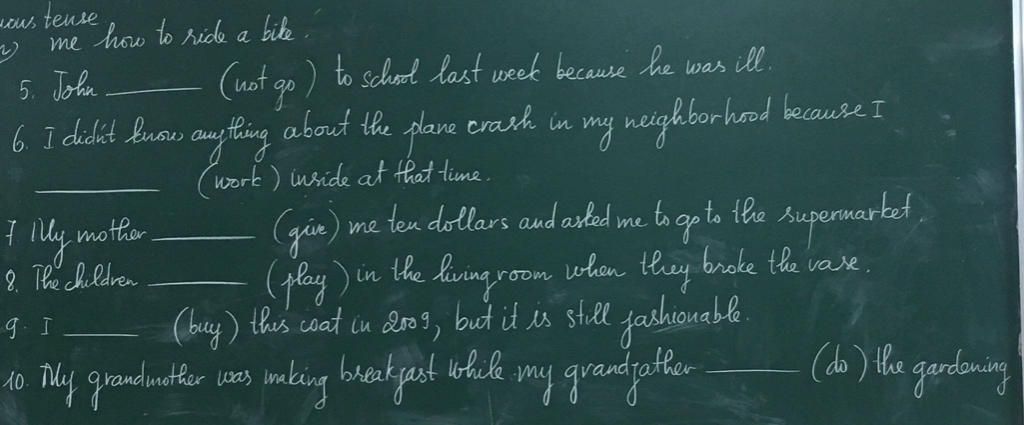 uous tense
me how to ride a bike.
5. John ______ (not go) to school last week because he was ill.
6. I didn't know anything about the plane crash in my neighborhood because I
______ (work) inside at that time.
7 My mother ______ (give) me ten dollars and asked me to go to the supermarket.
8. The children ______ (play) in the living room when they broke the vase.
9. I ______ (buy) this coat in 2009, but it is still fashionable.
10. My grandmother was making breakfast while my grandfather ______ (do) the gardening